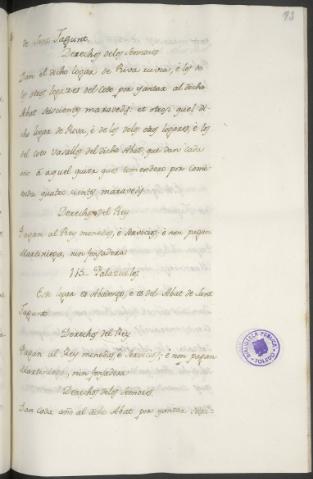 93
de Sant Fagunt.
Derechos de los Señores
Dan al dicho logar de Riva rubia, è los de
los otros logares del coto por yantar al dicho
Abat seiscientos maravedis: et otrosi quel di-
cho logar de Riva, è de los delos otros logares, è los
del coto Vasallos del dicho Abat, que dan cada
año à aquel que tomendero por come-
nda quatro cientos maravedis
Derechos del Rey
Pagan al Rey monedas, è servicios; è non pagan
Martiniega, nin fonsadera
115. Palazuelos
Este logar es Abadengo, è es del Abat de Sant
Fagunt
Derechos del Rey
Pagan al Rey monedas, è servicios; è non pagan
Martiniega, nin fonsadera
Derechos de los Señores
Dan cada año al dicho Abat por yantar
BIBLIOTECA PUBLICA
TOLEDO